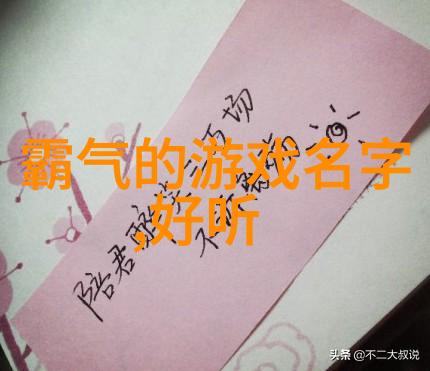 霸气的游戏名字
,好听
陪君醉笑三万场
不
头条 @不二大叔说